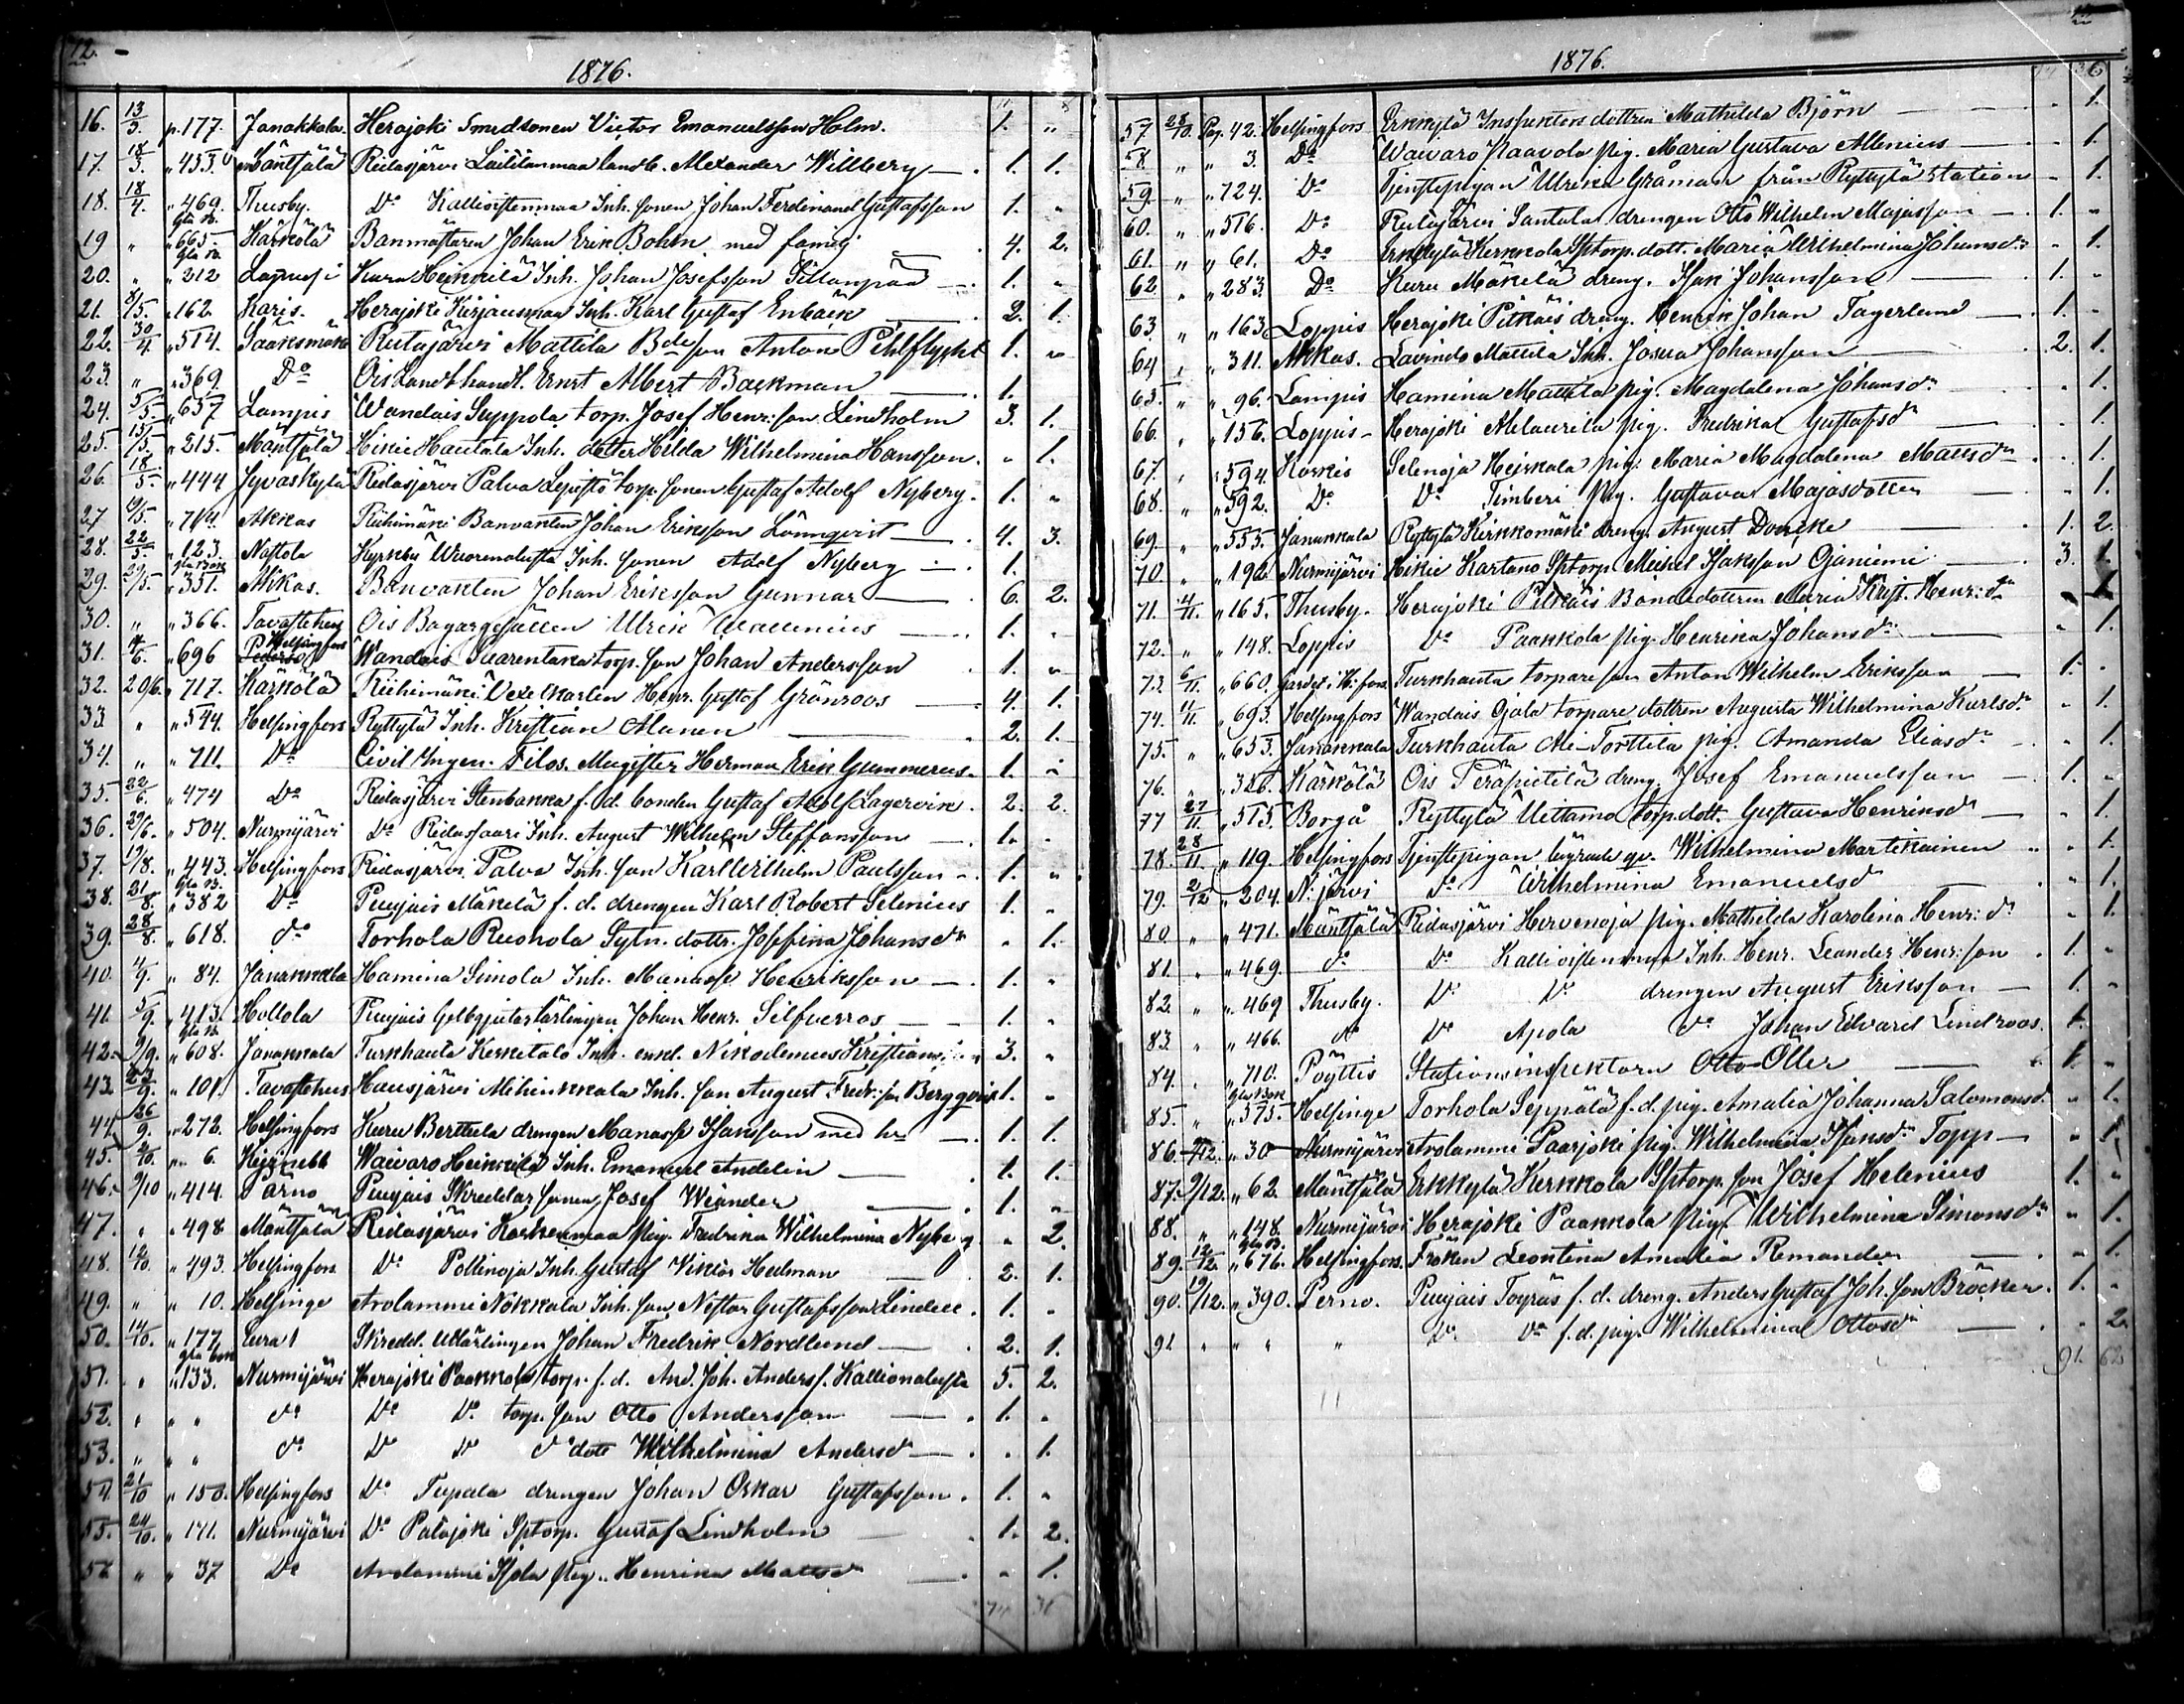 72.
1876.
16. 13/3. p. 177. Janakkala. Herajoki Smedsonen Victor Emanuelsson Holm. 1. "
17. 18/3. " 453. Mäntsälä Ridasjärvi Lailitanmaa landb. Alexander Willberg 1. 1.
18. 18/4. " 469. Thusby. Do Kallioistenmaa Inh. sonen Johan Ferdinand Gustafsson 1. "
19 " Gla B. " 665. Kärkölä Banmästaren Johan Erik Bohm med familj 4. 2.
20. " Gla B. " 212 Kuru Heinkilä Inh. Johan Josefsson Sillanpää 1. "
21. 8/5. " 162. Karis. Herajoki Kirjausmaa Inh. Karl Gustaf Enbäck 2. 1.
22. 30/4. " 514. Sääksmäki Rutajärvi Mattila Bde son Anton Pihlflycht 1. "
23. " " 369. Do Ois Landthandl. Ernst Albert Backman 1.
24. 5/5. " 657 Lampis Wandais Seppola torp. Josef Henr:son Lindholm 3. 1.
25. 15/5. " 215. Mäntsälä Hikiä Hautala Inh. dotter Hilda Wilhelmina Hansson. " 1.
26. 18/5. " 444 Jyväskylä Ridasjärvi Palva torp. sonen Gustaf Adolf Nyberg. 1. "
27 19/5. " Akkas Riihimäki Banvakten Johan Eriksson Lönnqvist 4. 3.
28. 22/5. " 123. Nastola Kyrkby Wuorenalusta Inh. sonen Adolf Nyberg 1.
29. 29/5. Gla Bok " 351. Akkas. Banvakten Johan Eriksson Gunnar 6. 2.
30. " " 366. Tavastehus Ois Bagargesällen Ulrik Wallenius 1. "
31. 4/6. " 696 Helsingfors Wandais Suarentaka torp. son Johan Andersson 1. "
32. 20/6. " 717. Kärkölä Riihimäki Vexelkarlen Henr. Gustaf Grönroos 4. 1.
33. " " 544. Helsingfors Ryttylä Inh. Kristian Alanen 2. 1.
34. " " 711. Do Civil Ingen. Filos. Magister Herman Erik Gummerus. 1. "
35. 22/6. " 474 Do Ridasjärvi Stenbacka f. d. bonden Gustaf Adolf Lagervik. 2. 2.
36. 29/6. " 504. Nurmijärvi Do Ridassaari Inh. August Wilhelm Steffansson 1. "
37. 19/8. " 443. Helsingfors Ridasjärvi Palva Inh. son Karl Wilhelm Paulsson 1. "
38. 21/8. Gla B. " 382 Do Puujais Mäkelä f. d. drengen Karl Robert Selenius 1. "
39. 28/8. " 618. do Torhola Ruohola Sytn. dottr. Josefina Johansdr " 1.
40. 4/9. " 84. Janakkala Hamina Simola Inh. Manasse Henriksson 1. "
41. 5/9. " 413. Hollola Puujais Gelbgjutarlärlingen Johan Henr. Silfverros 1. "
42. 9/9. Gla B. " 608. Janakkala Turkhauta Kerketalo Inh. enkl. Nikodemus 3. "
43. 23/9. " 101. Tavastehus Hausjärvi Mihinkkala Inh. son August Fredr:son Bergqvist 1. "
44. 26/9. " 272. Helsingfors Kuru Berttula drengen Manasse Isaksson med hu 1. 1.
45. 2/10. " 6. Waivaro Heinkilä Inh. Emanuel Andelin 1. 1.
46. 9/10 " 414. Pärno Puujais Skreddarsonen Josef Wiander 1. "
47. " " 498 Mäntsälä Ridasjärvi Korkenmaa pig. Fredrika Wilhelmina Nyberg " 2.
48. 12/10. " 493. Helsingfors Do Pollinoja Inh. Gustaf Viktor Hedman 2. 1.
49. " " 10. Helsinge Arolammi Nokkala Inh. son Nestor Gustafsson Lindell. 1. "
50. 14/10. " 177. Eura Skredd. Utlärlingen Johan Fredrik Nordlund 2. 1.
51. " Gla bok " 133. Nurmijärvi Herajoki Paakkala torp. f. d. And. Joh. Anderss. Kallionalusta 5. 2.
52. " " " do Do Do torp. son Otto Andersson 1. "
53. " " " do Do Do do dotr Wilhelmina Andersdr " 1.
54. 21/10 " 150. Helsingfors Do Tupala drengen Johan Oskar Gustafsson. 1. "
55. 24/10. " 171. Nurmijärvi Do Palojoki Sptorp. Gustaf Lindholm 1. 2.
" " 37 Do Arolammi Isola pig. Henrika Mattsdr " 1.
74 36
1876.
74 36
57. 28/10. Pag. 42. Helsingfors Erkkylä Inspektors dottren Mathilda Björn " 1.
58. " " 3. Do Waivaro Paavola pig. Maria Gustava Allenius " 1.
59. " " 724. Do Tjenstepigan Ulrika Gråman från Ryttylä Station " 1.
60. " " 516. Do Rutajärvi Santala drengen Otto Wilhelm Majasson 1. "
61. " " 61. Do Erkkylä Kerkkola Sptorp. dott. Maria Wilhelmina Johansdr " 1.
62 " " 283. Do Kuru Mäkelä dreng. Isak Johansson 1. "
63. " " 163 Loppis Herajoki Pitkäis dreng. Henrik Johan Fagerlund 1. "
64 " " 311. Akkas. Lavinto Mattila Inh. Josua Johansson 2. 1.
65. " " 96. Lampis Hamina Mattila pig. Magdalena Johansdr " 1.
66. " " 156. Loppis Herajoki Alilaurila pig. Fredrika Gustafsdr " 1.
67. " " 594. Koskis Selenoja Heiskala pig. Maria Magdalena Mattsdr " 1.
68. " " 592. Do Do Timberi pig. Gustava Majasdotter " 1.
69. " " 553. Janakkala Ryttylä Kirkkomäki dreng. August Doncke 1. 2.
70 " " 192. Nurmijärvi Hikiä Kartano Sptorp. Mickel Isaksson Ojaniemi 3. 1.
71. 4/11. " 165. Thusby. Herajoki Pitkäis Bondedottren Maria Krist. Henr:dr " 1.
72. " " 148. Loppis Do Paakkola pig. Henrika Johansdr " 1.
73. 6/11. " 660. Gardet i H:fors Turkhauta torpareson Anton Wilhelm Eriksson 1. "
74. 11/11. " 693. Helsingfors Wandais Ojala torpare dottren Augusta Wilhelmina Karlsdr " 1.
75. " " 653. Janakkala Turkhauta Ali-Torttila pig. Amanda Eliasdr " 1.
76. " " Kärkölä Ois Peräpietilä dreng. Josef Emanuelsson 1. "
77 27/11. " 515. Borgå Ryttylä Uittamo torp.dott. Gustava Henriksdr " 1.
78. 28/11. " 119 Helsingfors Tjenstepigan lägrade qv. Wilhelmina Martikainen " 1.
79. 2/12 " 204. N:järvi do Wilhelmina Emanuelsdr " 1.
80 " " 471. Mäntsälä Ridasjärvi Hirvenoja pig. Mathilda Karolina Henr:dr " 1.
81. " " 469. do Do Kallioistenmaa Inh. Henr. Leander Henr:son 1. "
82. " " 469 Thusby. Do Do drengen August Eriksson 1. "
83. " " 466. do Do Apola do Johan Edvard Lindroos. 1.
84. " " 710. Pöyttis Stationsinspektorn Otto Öller 1. "
85. " Gla Bok " 575. Helsinge Torhola Seppälä f. d. pig. Amalia Johanna Salomonsd. " 1.
86. " 30 Nurmijärvi Arolammi Paarjoki pig. Wilhelmina Isaksdr Topp " 1.
87. 9/12. " 62. Mäntsälä Erkkylä Kerkkola Sptorp. son Josef Helenius 1. "
88. " " 148. Nurmijärvi Herajoki Paakkola pig. Wilhelmina Simonsdr " 1.
89. 12/12. Gla B. " 676. Helsingfors. Fröken Leontina Amalia Remander " 1.
90. 19/12. " 390. Perno. Puujais Töyräs f. d. dreng. Anders Gustaf Joh. son Bröcker. 1. "
91 " " " " Do Do f. d. pig. Wilhelmina Ottosdr " 2.
91. 62